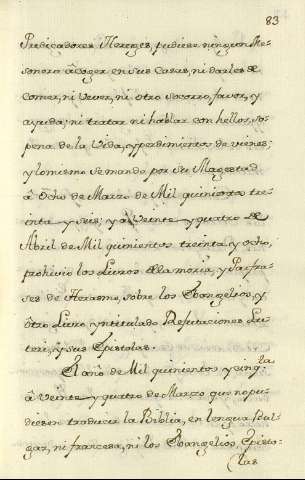 83
Predicadores Hereges, pudiese ningun Me-
sonero acoger en sus Casas, ni darles de
comer, ni vever, ni otro socorro, favor, y
ayuda; ni tratar ni hablar con hellos, so-
pena de la Vida, y perdimientos de vienes;
y lo mismo se mando por su Magestad
â Ocho de Marzo de Mil quinientos tre-
inta y seis; y â Veinte y quatro de
Abril de Mil quinientos treinta y ocho,
prohivio los Livros de la moria, y Parfra-
ses de Herasmo, sobre los Evangelios, y
ôtro Livro yntitulado Refutaciones Lu-
teri, y sus Epistolas.
El año de Mil quinientos y cinq.ta
â veinte y quatro de Março que no pu-
diesen traducir la Biblia, en lengua Bul-
gar, ni francesa, ni los Evangelios, Episto-
las